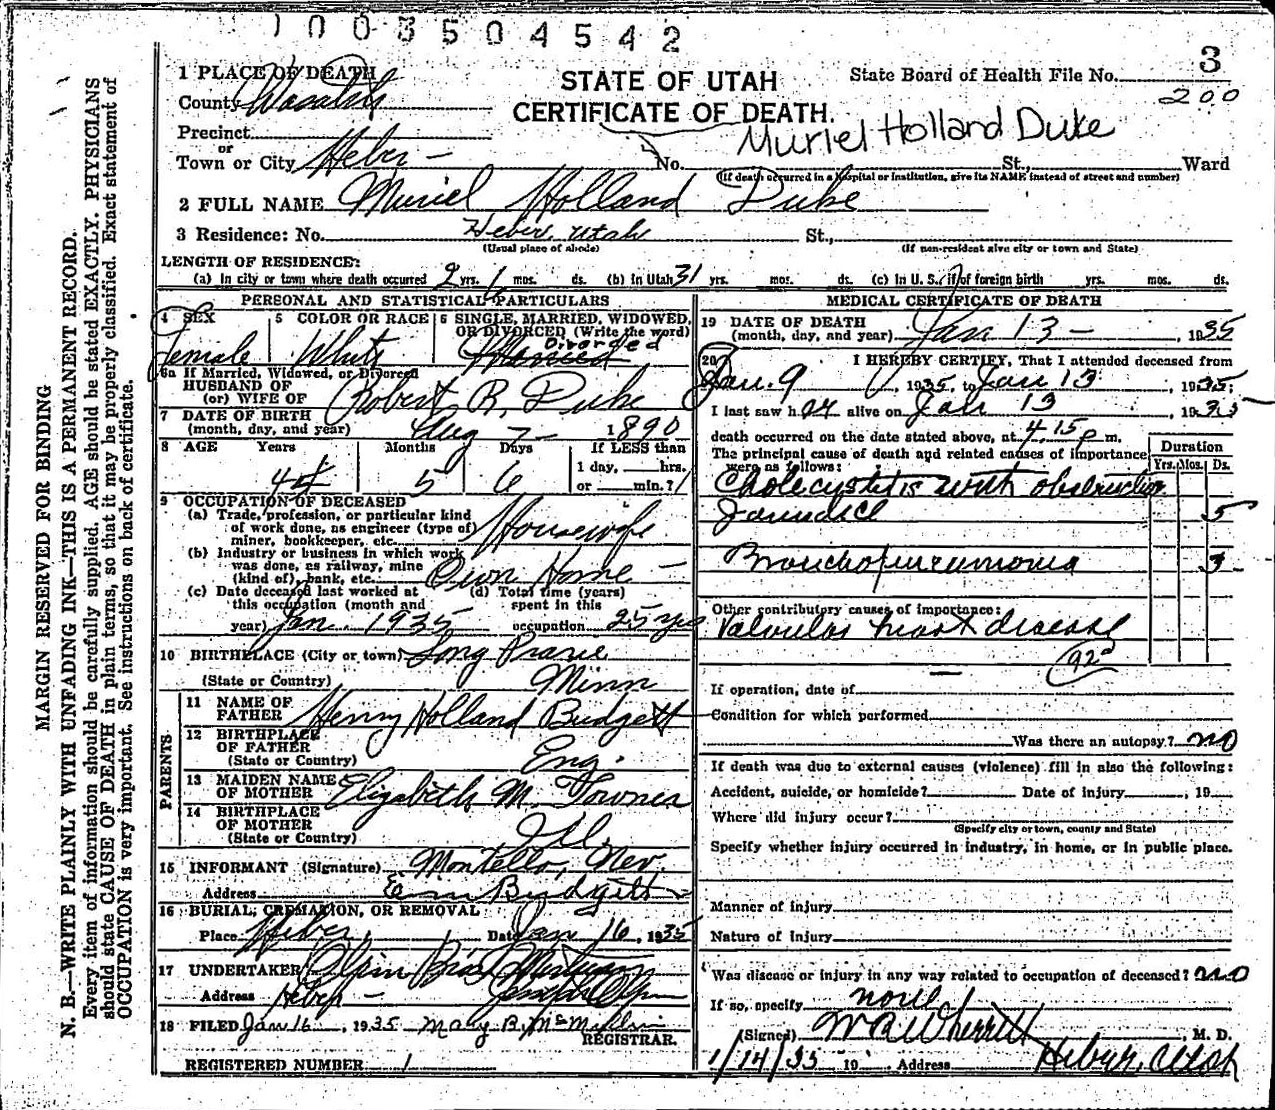 1003504542
3
1 PLACE OF DEATH
STATE OF UTAH
State Board of Health File No.
200
County Wasatch
CERTIFICATE OF DEATH.
Muriel Holland Duke
Precinct
or
Town or City Heber -
No. St., Ward
(If death occurred in a hospital or institution, give its NAME instead of street and number)
2 FULL NAME Muriel Holland Duke
3 Residence: No. Heber, Utah St.,
(Usual place of abode) (If non-resident give city or town and State)
LENGTH OF RESIDENCE:
(a) In city or town where death occurred 2 yrs. 6 mos. ds. (b) In Utah 31 yrs. mos. ds. (c) In U. S., if of foreign birth yrs. mos. ds.
PERSONAL AND STATISTICAL PARTICULARS
4 SEX 5 COLOR OR RACE 6 SINGLE, MARRIED, WIDOWED, OR DIVORCED (Write the word)
Female White Married Divorced
6a If Married, Widowed, or Divorced
HUSBAND OF
(or) WIFE OF Robert R. Duke
7 DATE OF BIRTH
(month, day, and year) Aug 7 - 1890
8 AGE Years Months Days If LESS than
44 5 6 1 day, hrs.
or min.?
9 OCCUPATION OF DECEASED
(a) Trade, profession, or particular kind
of work done, as engineer (type of)
miner, bookkeeper, etc. Housewife
(b) Industry or business in which work
was done, as railway, mine
(kind of), bank, etc. Own Home -
(c) Date deceased last worked at
this occupation (month and
year) Jan. 1935
(d) Total time (years)
spent in this
occupation 25 yrs
10 BIRTHPLACE (City or town) Long Prarie
(State or Country) Minn
PARENTS
11 NAME OF
FATHER Henry Holland Budgett
12 BIRTHPLACE
OF FATHER Eng.
(State or Country)
13 MAIDEN NAME
OF MOTHER Elizabeth M. Towner
14 BIRTHPLACE
OF MOTHER Ill.
(State or Country)
15 INFORMANT (Signature) Montello, Nev.
Address E m Budgett
16 BURIAL, CREMATION, OR REMOVAL
Place Heber Date Jan 16, 1935
17 UNDERTAKER Olpin Bros Mortuary
Address Heber -
18 FILED Jan 16, 1935 Mary B. McMillin
REGISTRAR.
REGISTERED NUMBER 1
MEDICAL CERTIFICATE OF DEATH
19 DATE OF DEATH
(month, day, and year) Jan 13 - 1935
20 I HEREBY CERTIFY, That I attended deceased from
Jan. 9, 1935, to Jan 13, 1935;
I last saw her alive on Jan 13, 1935
death occurred on the date stated above, at 4.15 p m.
The principal cause of death and related causes of importance
were as follows:
Duration
Yrs. Mos. Ds.
Cholecystitis with obstruction
Jaundice 5
Bronchopneumonia 3
Other contributory causes of importance:
Valvular heart disease
92a
If operation, date of
Condition for which performed
Was there an autopsy? no
If death was due to external causes (violence) fill in also the following:
Accident, suicide, or homicide? Date of injury, 19
Where did injury occur?
(Specify city or town, county and State)
Specify whether injury occurred in industry, in home, or in public place.
Manner of injury
Nature of injury
Was disease or injury in any way related to occupation of deceased? no
If so, specify none
(Signed) W R Wherritt, M. D.
1/14/35 19 Address Heber, Utah
MARGIN RESERVED FOR BINDING
N. B.—WRITE PLAINLY WITH UNFADING INK—THIS IS A PERMANENT RECORD.
Every item of information should be carefully supplied. AGE should be stated EXACTLY. PHYSICIANS
should state CAUSE OF DEATH in plain terms, so that it may be properly classified. Exact statement of
OCCUPATION is very important. See instructions on back of certificate.